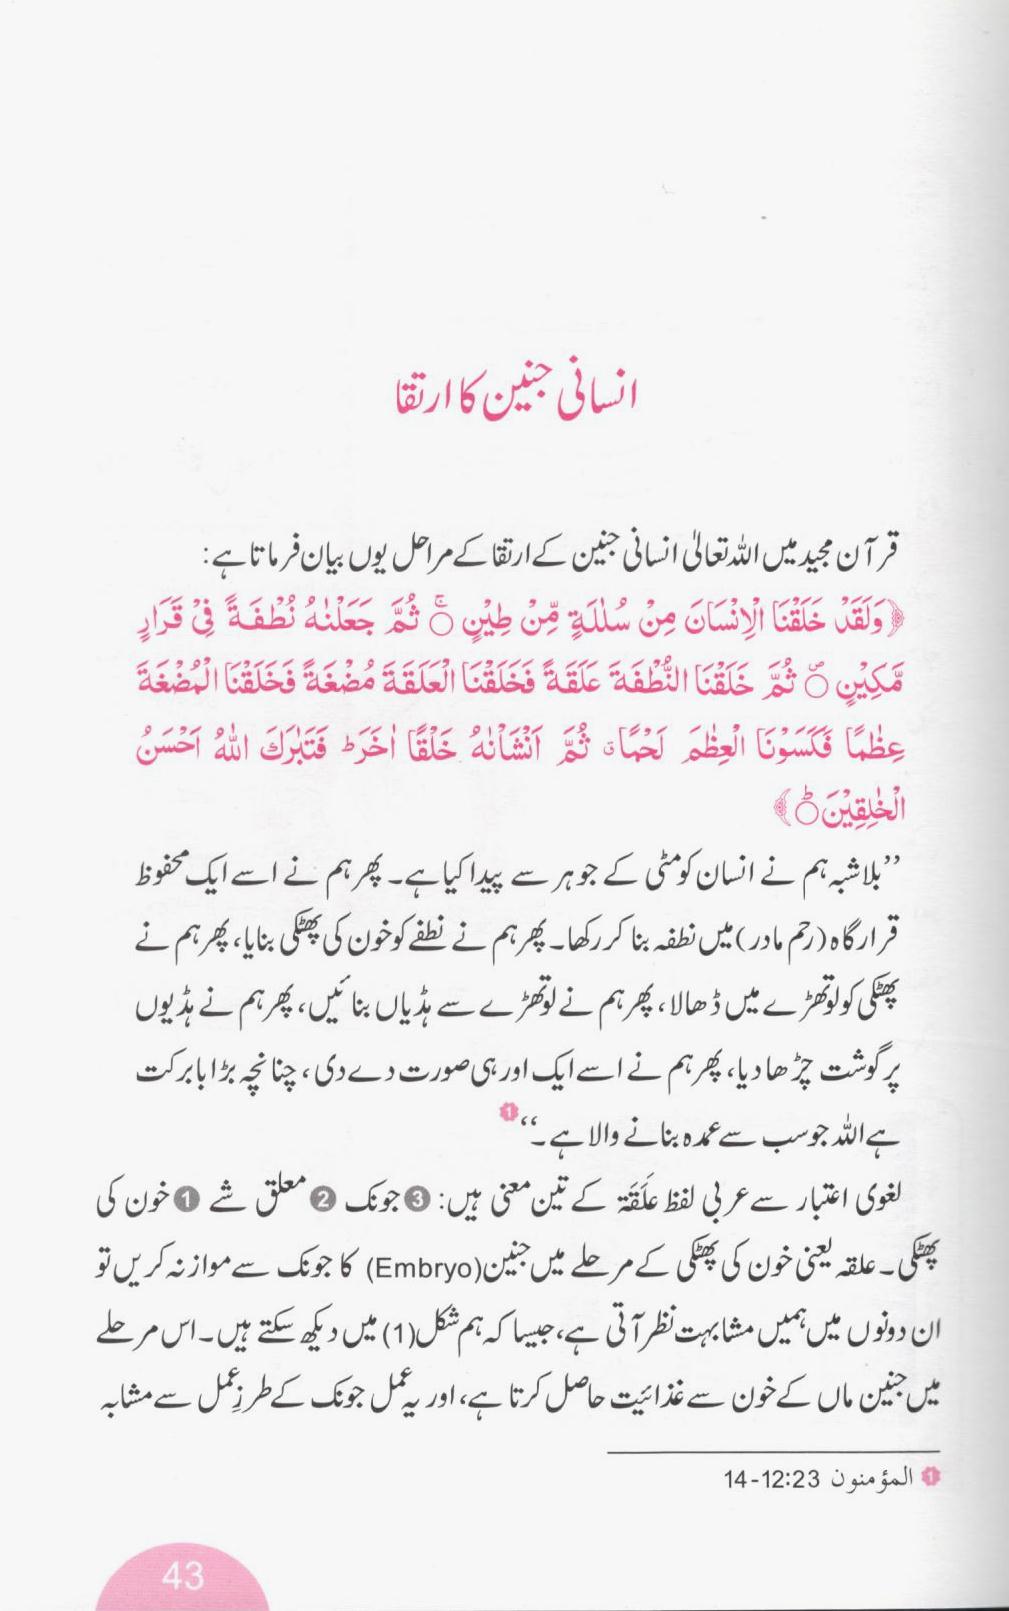 انسانی جنین کا ارتقا
قرآن مجید میں اللہ تعالیٰ انسانی جنین کے ارتقا کے مراحل یوں بیان فرماتا ہے:
﴿وَلَقَدْ خَلَقْنَا الْاِنْسَانَ مِنْ سُلٰلَةٍ مِّنْ طِيْنٍ ۝ۚ ثُمَّ جَعَلْنٰهُ نُطْفَةً فِيْ قَرَارٍ
مَّكِيْنٍ ۝۪ ثُمَّ خَلَقْنَا النُّطْفَةَ عَلَقَةً فَخَلَقْنَا الْعَلَقَةَ مُضْغَةً فَخَلَقْنَا الْمُضْغَةَ
عِظٰمًا فَكَسَوْنَا الْعِظٰمَ لَحْمًا ۗ ثُمَّ اَنْشَاْنٰهُ خَلْقًا اٰخَرَ ؕ فَتَبٰرَكَ اللّٰهُ اَحْسَنُ
الْخٰلِقِيْنَ ۝ؕ﴾
’’بلاشبہ ہم نے انسان کو مٹی کے جوہر سے پیدا کیا ہے۔ پھر ہم نے اسے ایک محفوظ
قرار گاہ (رحم مادر) میں نطفہ بنا کر رکھا۔ پھر ہم نے نطفے کو خون کی پھٹکی بنایا، پھر ہم نے
پھٹکی کو لوتھڑے میں ڈھالا، پھر ہم نے لوتھڑے سے ہڈیاں بنائیں، پھر ہم نے ہڈیوں
پر گوشت چڑھا دیا، پھر ہم نے اسے ایک اور ہی صورت دے دی، چنانچہ بڑا بابرکت
ہے اللہ جو سب سے عمدہ بنانے والا ہے۔‘‘ 1
لغوی اعتبار سے عربی لفظ عَلَقَة کے تین معنی ہیں: ❸ جونک ❷ معلق شے ❶ خون کی
پھٹکی۔ علقہ یعنی خون کی پھٹکی کے مرحلے میں جنین (Embryo) کا جونک سے موازنہ کریں تو
ان دونوں میں ہمیں مشابہت نظر آتی ہے، جیسا کہ ہم شکل (1) میں دیکھ سکتے ہیں۔ اس مرحلے
میں جنین ماں کے خون سے غذائیت حاصل کرتا ہے، اور یہ عمل جونک کے طرزِ عمل سے مشابہ
1 المؤمنون 23:12-14
43